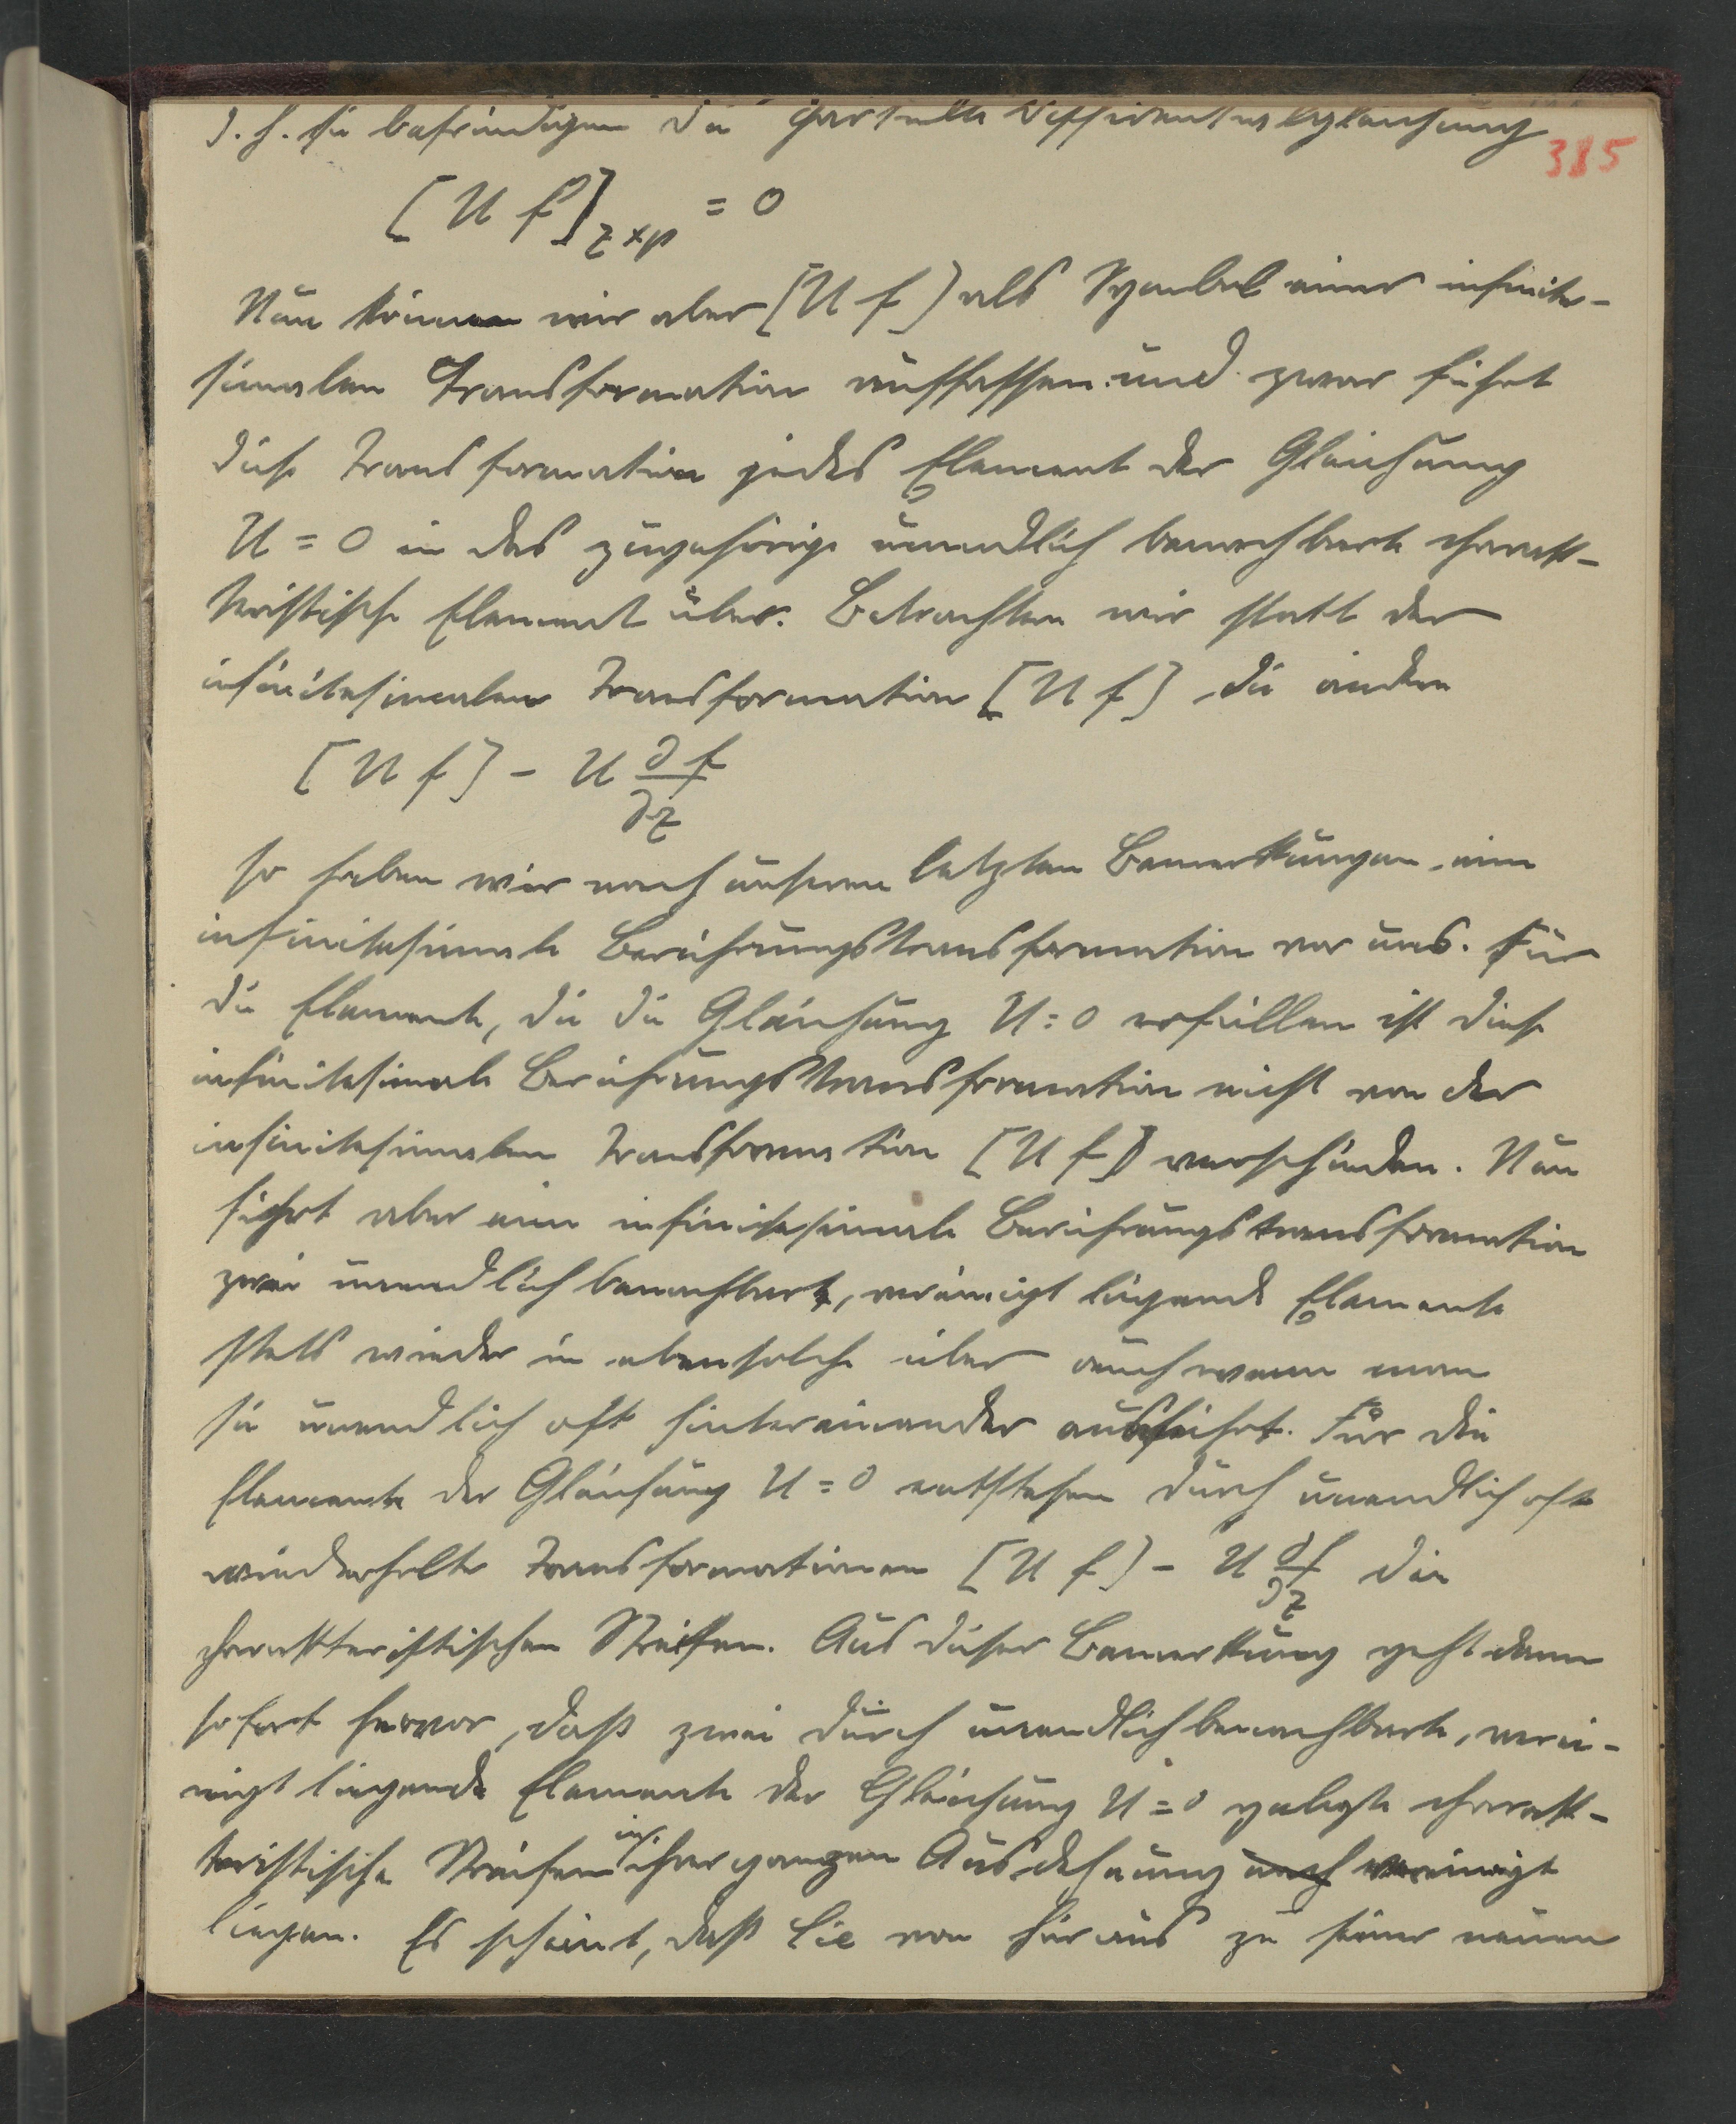 d. h. sie befriedigen die partielle Differentialgleichung
385
[U f]zxp = 0
Nun können wir aber [U f] als Symbol einer infinite-
simalen Transformation auffassen und zwar führt
diese Transformation jedes Element der Gleichung
U = 0 in das zugehörige unendlich benachbarte charakt-
teristische Element über. Betrachten wir statt der
infinitesimalen Transformation [U f], die andere
[U f] - U ∂f/∂z
so haben wir nach unseren letzten Bemerkungen eine
infinitesimale Berührungstransformation vor uns. Für
die Elemente, die die Gleichung U = 0 erfüllen ist diese
infinitesimale Berührungstransformation nicht von der
infinitesimalen Transformation [U f] verschieden. Nun
führt aber eine infinitesimale Berührungstransformation
zwei unendlich benachbarte, vereinigt liegende Elemente
stets wieder in ebensolche über auch wenn man
sie unendlich oft hintereinander ausführt. Für die
Elemente der Gleichung U = 0 entstehen durch unendlich oft
wiederholte Transformationen [U f] - U ∂f/∂z die
charakteristischen Streifen. Aus dieser Bemerkung geht dann
sofort hervor, daß zwei durch unendlich benachbarte, verei-
nigt liegende Elemente der Gleichung U = 0 gelegte charakt-
teristische Streifen in ihrer ganzen Ausdehnung vereinigt
liegen. Es scheint, daß Lie von hier aus zu seiner neuen